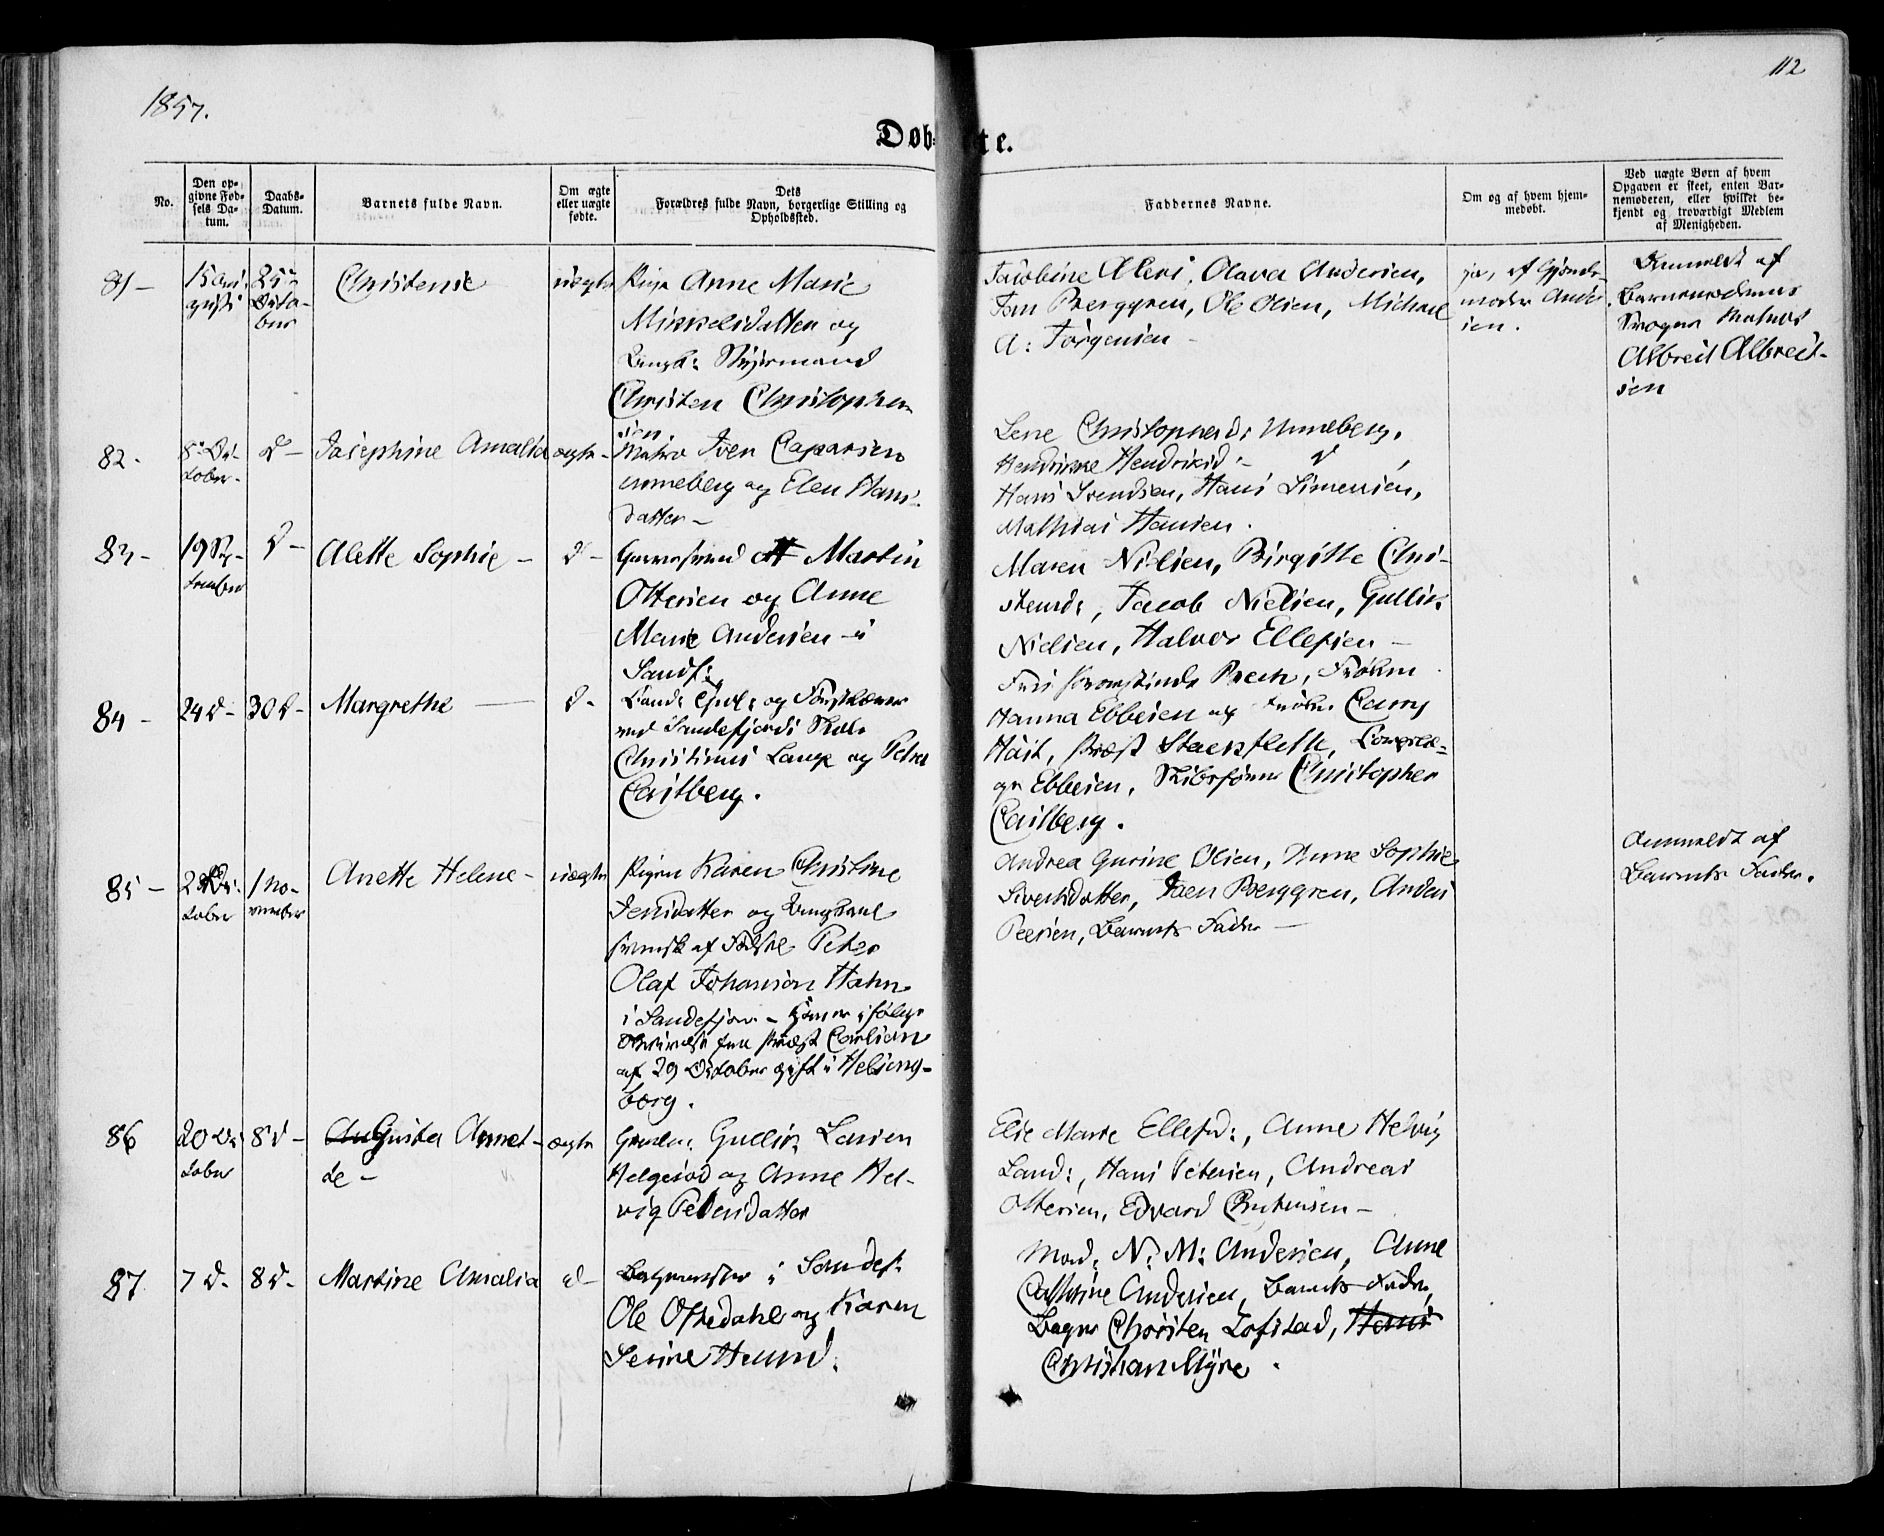 1857.
112
Døbte.
No.
Den opgivne Fødsels Datum.
Daabs-Datum.
Barnets fulde Navn.
Om ægte eller uægte fødte.
Dets Forældres fulde Navn, borgerlige Stilling og Opholdssted.
Faddernes Navne.
Om og af hvem hjemmedøbt.
Ved uægte Børn af hvem Opgaven er skeet, enten Barnemoderen, eller hvilket bekjendt og troværdigt Medlem af Menigheden.
81 –
15 Au-
gust
25
Octo-
ber
Christense
uægte
Pige Anne Marie
Mikkelsdatter og
Ungk: Styrmand
Christen Christophersen
Jacobine Alexi, Olava Andersen,
Berggren, Ole Olsen, Michael
A: Jørgensen –
ja, af Gjorde-
moder Ander
sen.
Anmeldt af
Barnemoderens
Svoger Matros
Albret Albret-
sen
82 -
8 Oc-
tober -
d –
Josephine Amalia
ægte -
Matro Iver Caparsen
Unneberg og Elen Hans-
datter –
Lene Christophersd: Unneberg,
Hendrikke Hendriksd: – d,
Hans Svendsen, Hans Simensen,
Mathias Hansen.
83 –
19 Sep-
tember
d –
Alette Sophie –
d –
Martin
Ottersen og Anne
Marie Andersen – i
Sandf:
Maren Nielsen, Birgitte Chri-
stensd:, Jacob Nielsen, Gullik
Nielsen, Halvor Ellefsen –
84 –
24 d –
30 d –
Margrethe
d -
Cand: theol: og
ved Sandefjords Skole
Christinus Lange og Petra
Castberg.
Fru Bech, Frøken
Hanna Ebbesen og Frøken Camy
Høst, Præst Stackfleth,
Ebbesen, Skibsfører Christopher
Castberg.
85 –
Oc-
tober
1 No-
vember
Anette Helene –
uægte
Pigen Karen Christine
Jensdatter og Ungkarl
svensk af Fødsel Peter
Olaf Johanson Hahn
i Sandefjord –
fra Præst Carlson
af 29 October gift i Helsing-
borg.
Andrea Gurine Olsen, Anne Sophie
Sivertsdatter, Berggren, Anders
Peersen, Barnets Fader –
Anmeldt af
Barnets Fader.
86
20 Oc
tober
8 d –
Augusta Annet-
te –
ægte
Gullik Larsen
Helgerød og Anne Hel-
vig Petersdatter
Else Marie Ellefsd:, Anne Helvig
Land:, Hans Petersen, Andreas
Ottersen, Edvard Christensen –
87
7 d -
8 d -
Martine Amalia
d –
Bagmester i Sandef.
Ole Oftedahl og Karen
Serine Heund.
Mad: N: M: Andersen, Anne
Cathrine Andersen, Barnets Fader,
Bager Thorsten Lofstad, Hans
Christian Myre.